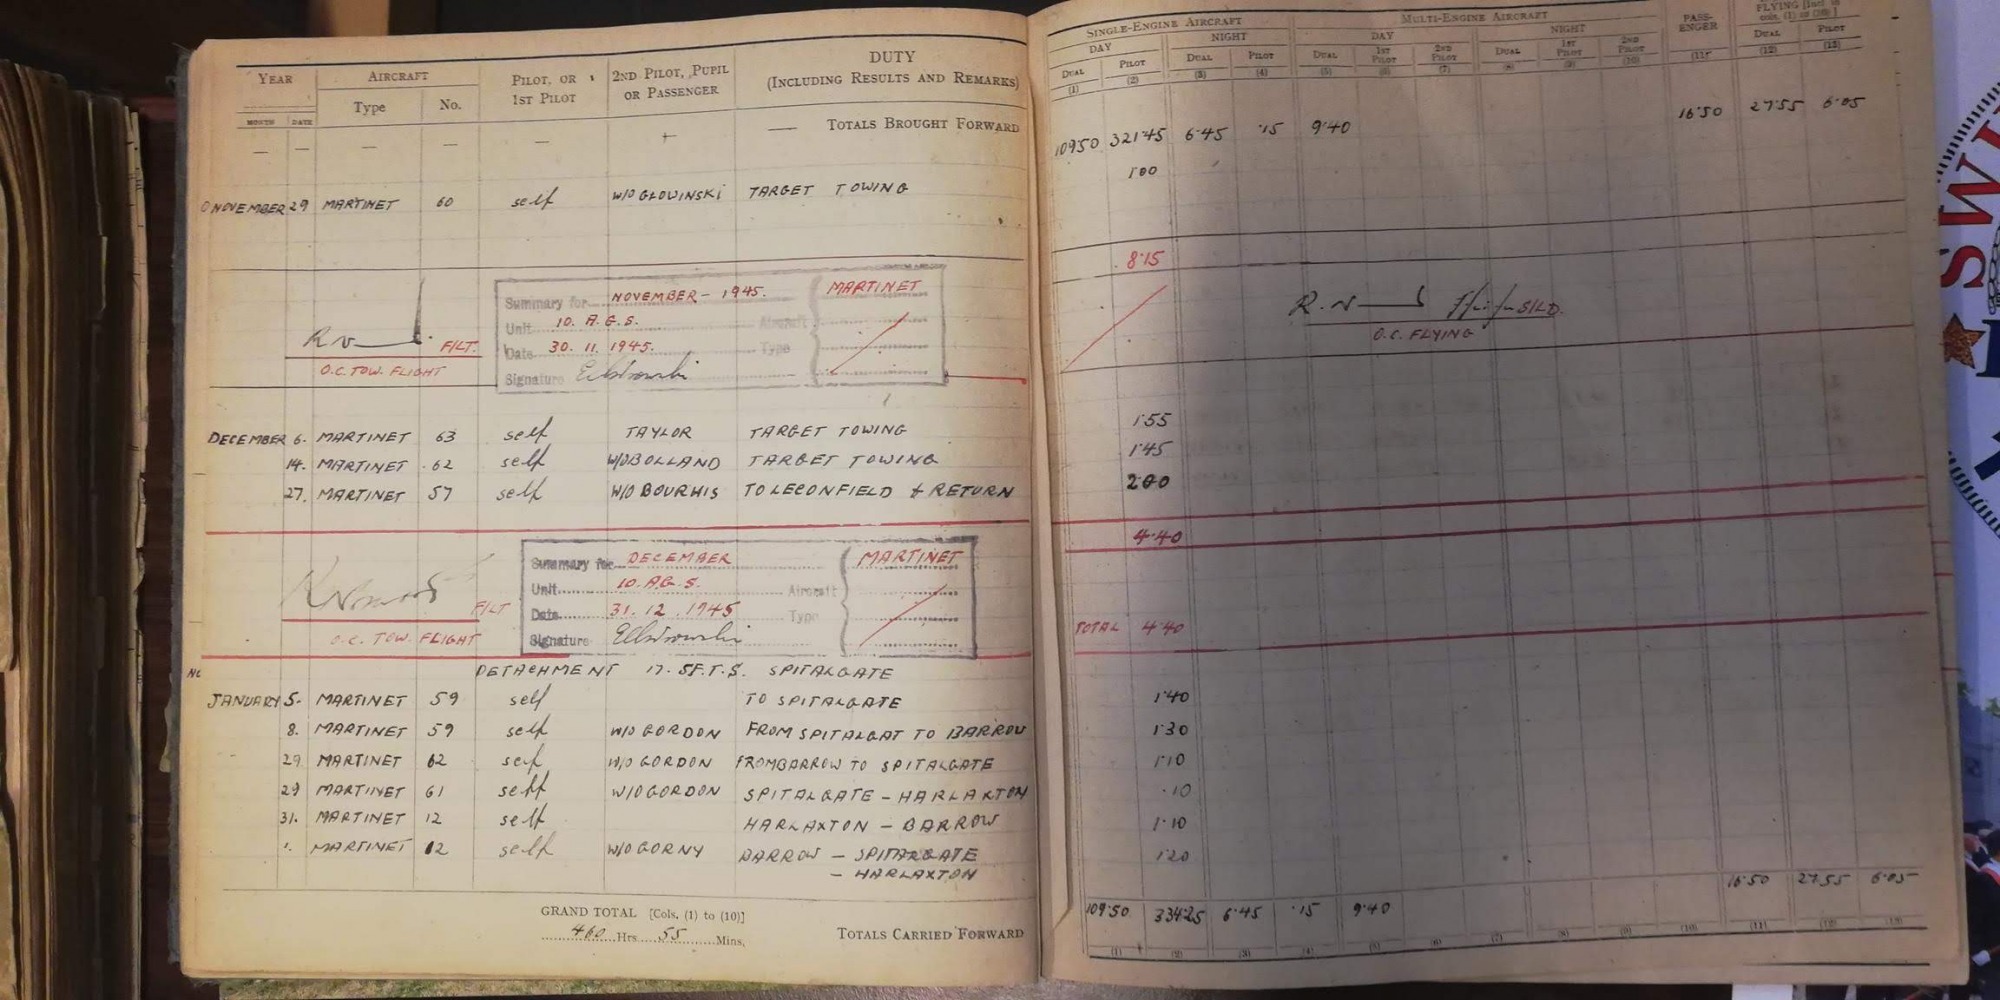 YEAR AIRCRAFT PILOT, OR 1ST PILOT 2ND PILOT, PUPIL OR PASSENGER DUTY (INCLUDING RESULTS AND REMARKS)
MONTH DATE Type No.
— — — — — + — TOTALS BROUGHT FORWARD
NOVEMBER 29 MARTINET 60 self W/O GŁOWINSKI TARGET TOWING
Summary for NOVEMBER - 1945. MARTINET
Unit 10. A.G.S. Aircraft
Date 30. 11. 1945. Type
Signature
F/LT.
O.C. TOW. FLIGHT
DECEMBER 6. MARTINET 63 self TAYLOR TARGET TOWING
14. MARTINET 62 self W/O BOLLAND TARGET TOWING
27. MARTINET 57 self W/O BOURHIS TO LECONFIELD + RETURN
Summary for DECEMBER MARTINET
Unit 10. A.G.S. Aircraft
Date 31. 12. 1945 Type
Signature
F/LT
O.C. TOW. FLIGHT
DETACHMENT 17. SF.T.S. SPITALGATE
JANUARY 5. MARTINET 59 self TO SPITALGATE
8. MARTINET 59 self W/O GORDON FROM SPITALGAT TO BARROW
29 MARTINET 62 self W/O GORDON FROM BARROW TO SPITALGATE
29 MARTINET 61 self W/O GORDON SPITALGATE - HARLAXTON
31. MARTINET 12 self HARLAXTON - BARROW
1. MARTINET 12 self W/O GORNY BARROW - SPITALGATE
- HARLAXTON
GRAND TOTAL [Cols. (1) to (10)]
460 Hrs. 55 Mins.
TOTALS CARRIED FORWARD
SINGLE-ENGINE AIRCRAFT MULTI-ENGINE AIRCRAFT PASSENGER FLYING [Incl. in cols. (1) to (10)]
DAY NIGHT DAY NIGHT
DUAL PILOT DUAL PILOT DUAL 1ST PILOT 2ND PILOT DUAL 1ST PILOT 2ND PILOT DUAL PILOT
(1) (2) (3) (4) (5) (6) (7) (8) (9) (10) (11) (12) (13)
109.50 321.45 6.45 .15 9.40 16.50 27.55 6.05
1.00
8.15
S/LD.
O.C. FLYING
1.55
1.45
2.00
4.40
TOTAL 4.40
1.40
1.30
1.10
.10
1.10
1.20
109.50 334.25 6.45 .15 9.40 16.50 27.55 6.05
(1) (2) (3) (4) (5) (6) (7) (8) (9) (10) (11) (12) (13)